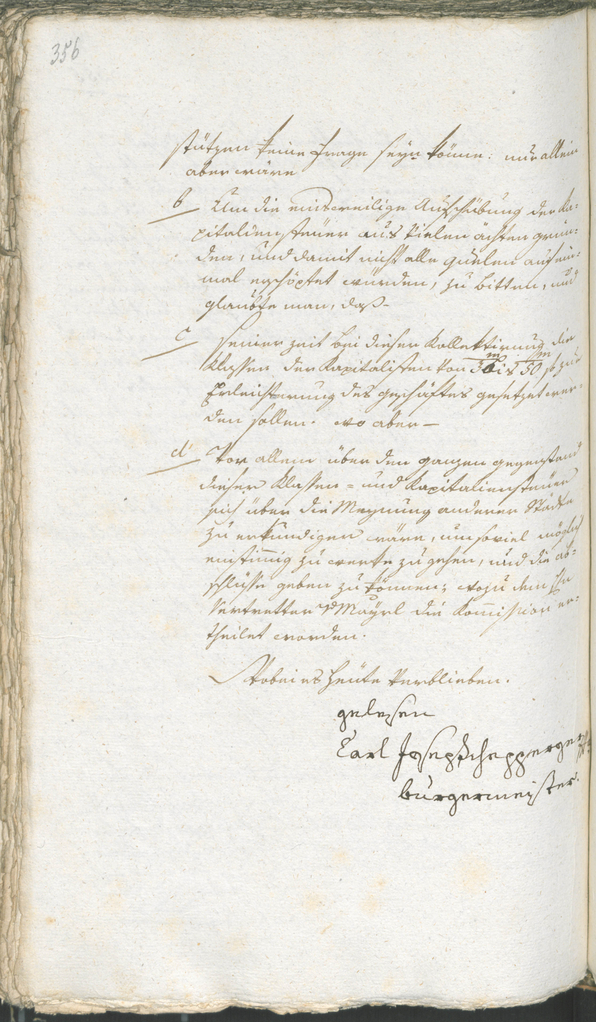 356
stützen keine Frage seyn könne: nur allein
aber wäre
b Um die einsweilige Aufschübung der Ka=
pitaliensteuer aus vielen ächten grün=
den, und damit nicht alle quelen auf ein=
mal erschöpfet würden, zu bitten, und
glaubte man, daß
c seiner zeit bei dieser Kollektirung die
Klassen der Kapitalisten von 30 bis 50 m
Erleichterung des geschäftes gesetzet wer=
den sollen. wo aber —
d Vor allem über den ganzen gegenstand
dieser Klassen= und Kapitaliensteuer
sich über die Meynung anderer Städte
zu erkundigen wäre, um soviel möglich
einstimmig zu werke zu gehen, und die ab=
schlüsse geben zu können; wozu dem Hn
Vertretter Mayrl die Kommission er=
theilet worden.
Wobei es heute verblieben.
gelesen
Carl Joseph
burgermeister.